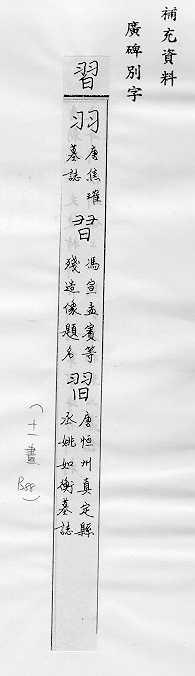 補充資料
廣碑別字
習
唐焦璀
墓誌
習
馮宣孟等
殘造像題名
唐恒州真定縣
丞姚如衡墓誌
(十一畫 B88)